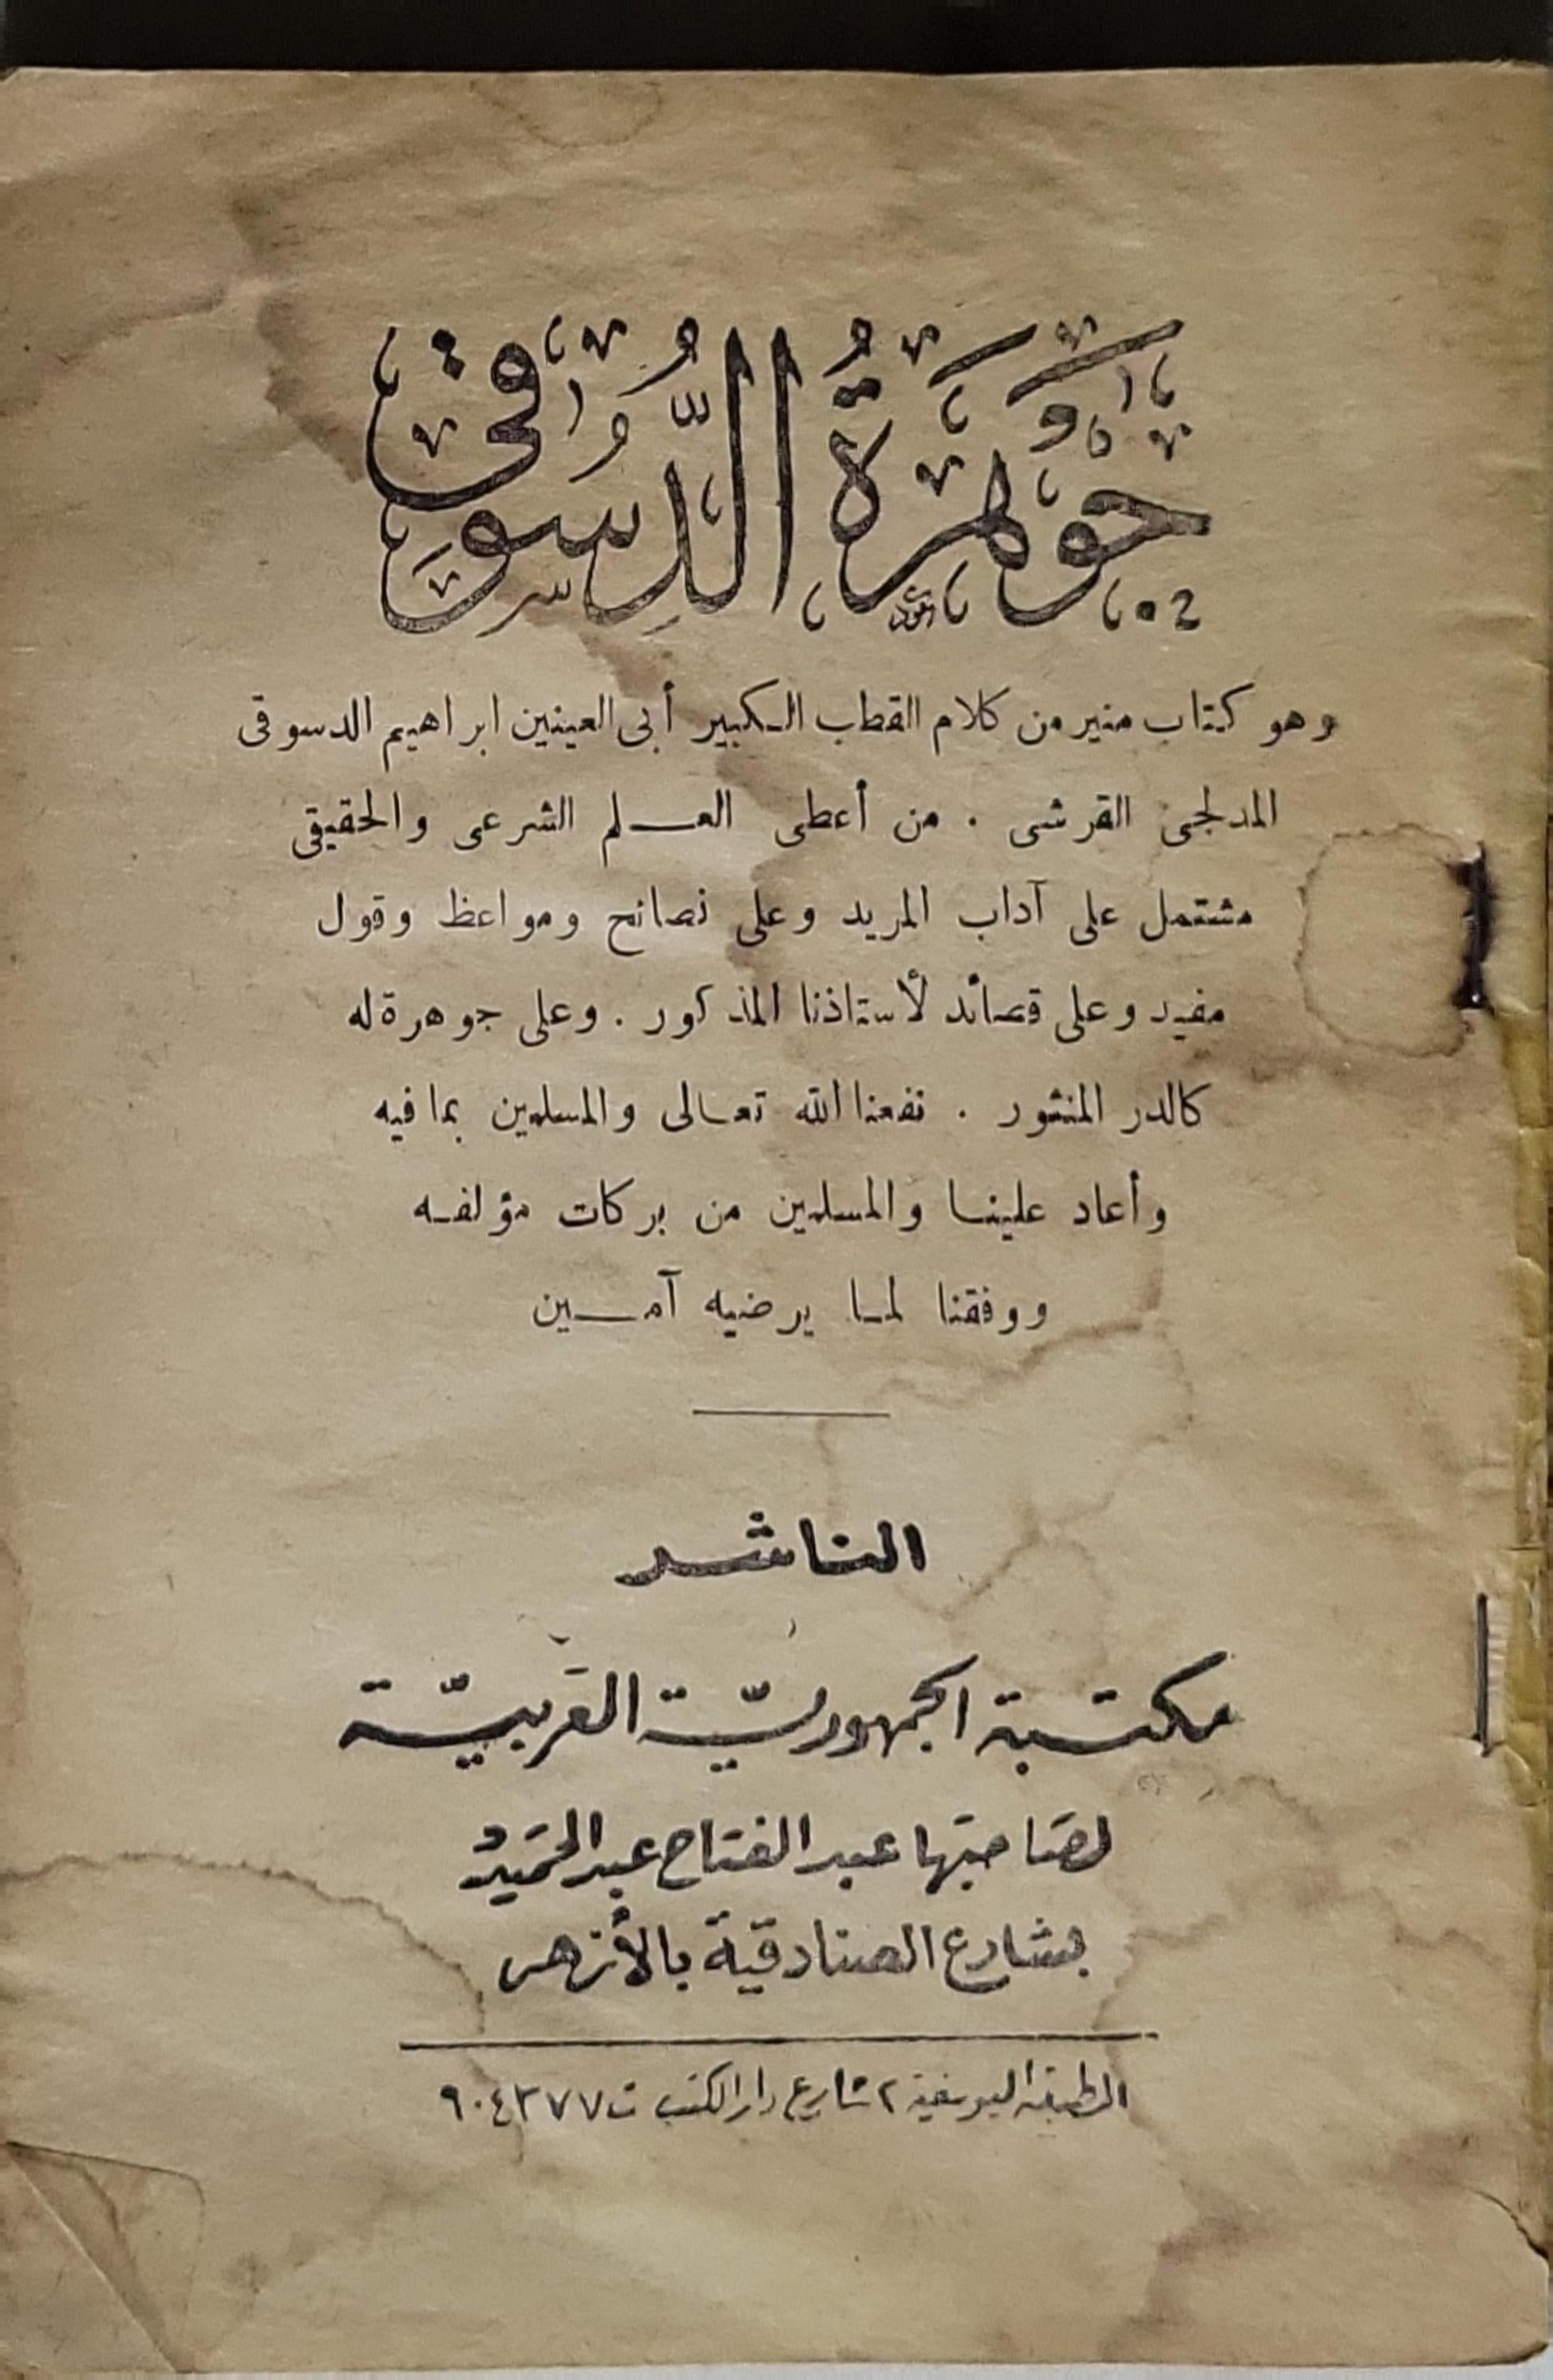 جَوْهَرَةُ الدُّسُوقِي
وهو كتاب منير من كلام القطب الكبير أبى العينين ابراهيم الدسوقى
المدلجى القرشى . من أعطى العـــلم الشرعى والحقيقى
مشتمل على آداب المريد وعلى نصائح ومواعظ وقول
مفيد وعلى قصائد لأستاذنا المذكور . وعلى جوهرة له
كالدر المنثور . نفعنا الله تعالى والمسلمين بما فيه
وأعاد علينا والمسلمين من بركات مؤلفه
ووفقنا لما يرضيه آمــين
الناشر
مكتبة الجمهوريّة العَربيّة
لصَاحبَها عبد الفتاح عبد الحَميْد
بشارع الصنادقية بالأزهر
المطبعة اليوسفية ٢ شارع دار الكتب ت ٩٠٤٣٧٧